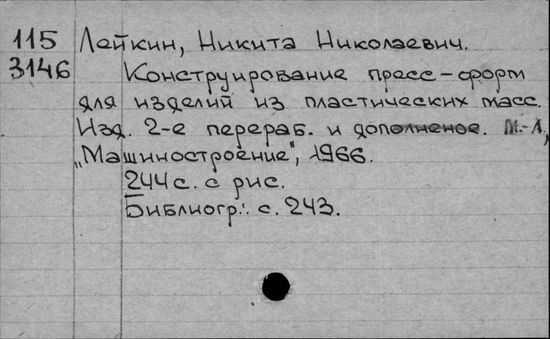 115 Лейкин, Никита Николаевич.
3146 Конструирование пресс-форм
для изделий из пластических масс.
Изд. 2-е перераб. и дополненое. М.-Л,
„Машиностроение", 1966.
244 с. с рис.
Библиогр.: с. 243.